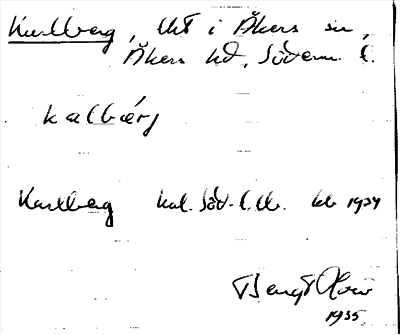 Karlberg, lht i Åkers sn,
Åkers hd, Söderm. l.
kalbærj
Karlberg kal. Söd. l. lb. kb 1934
Bengt
1935